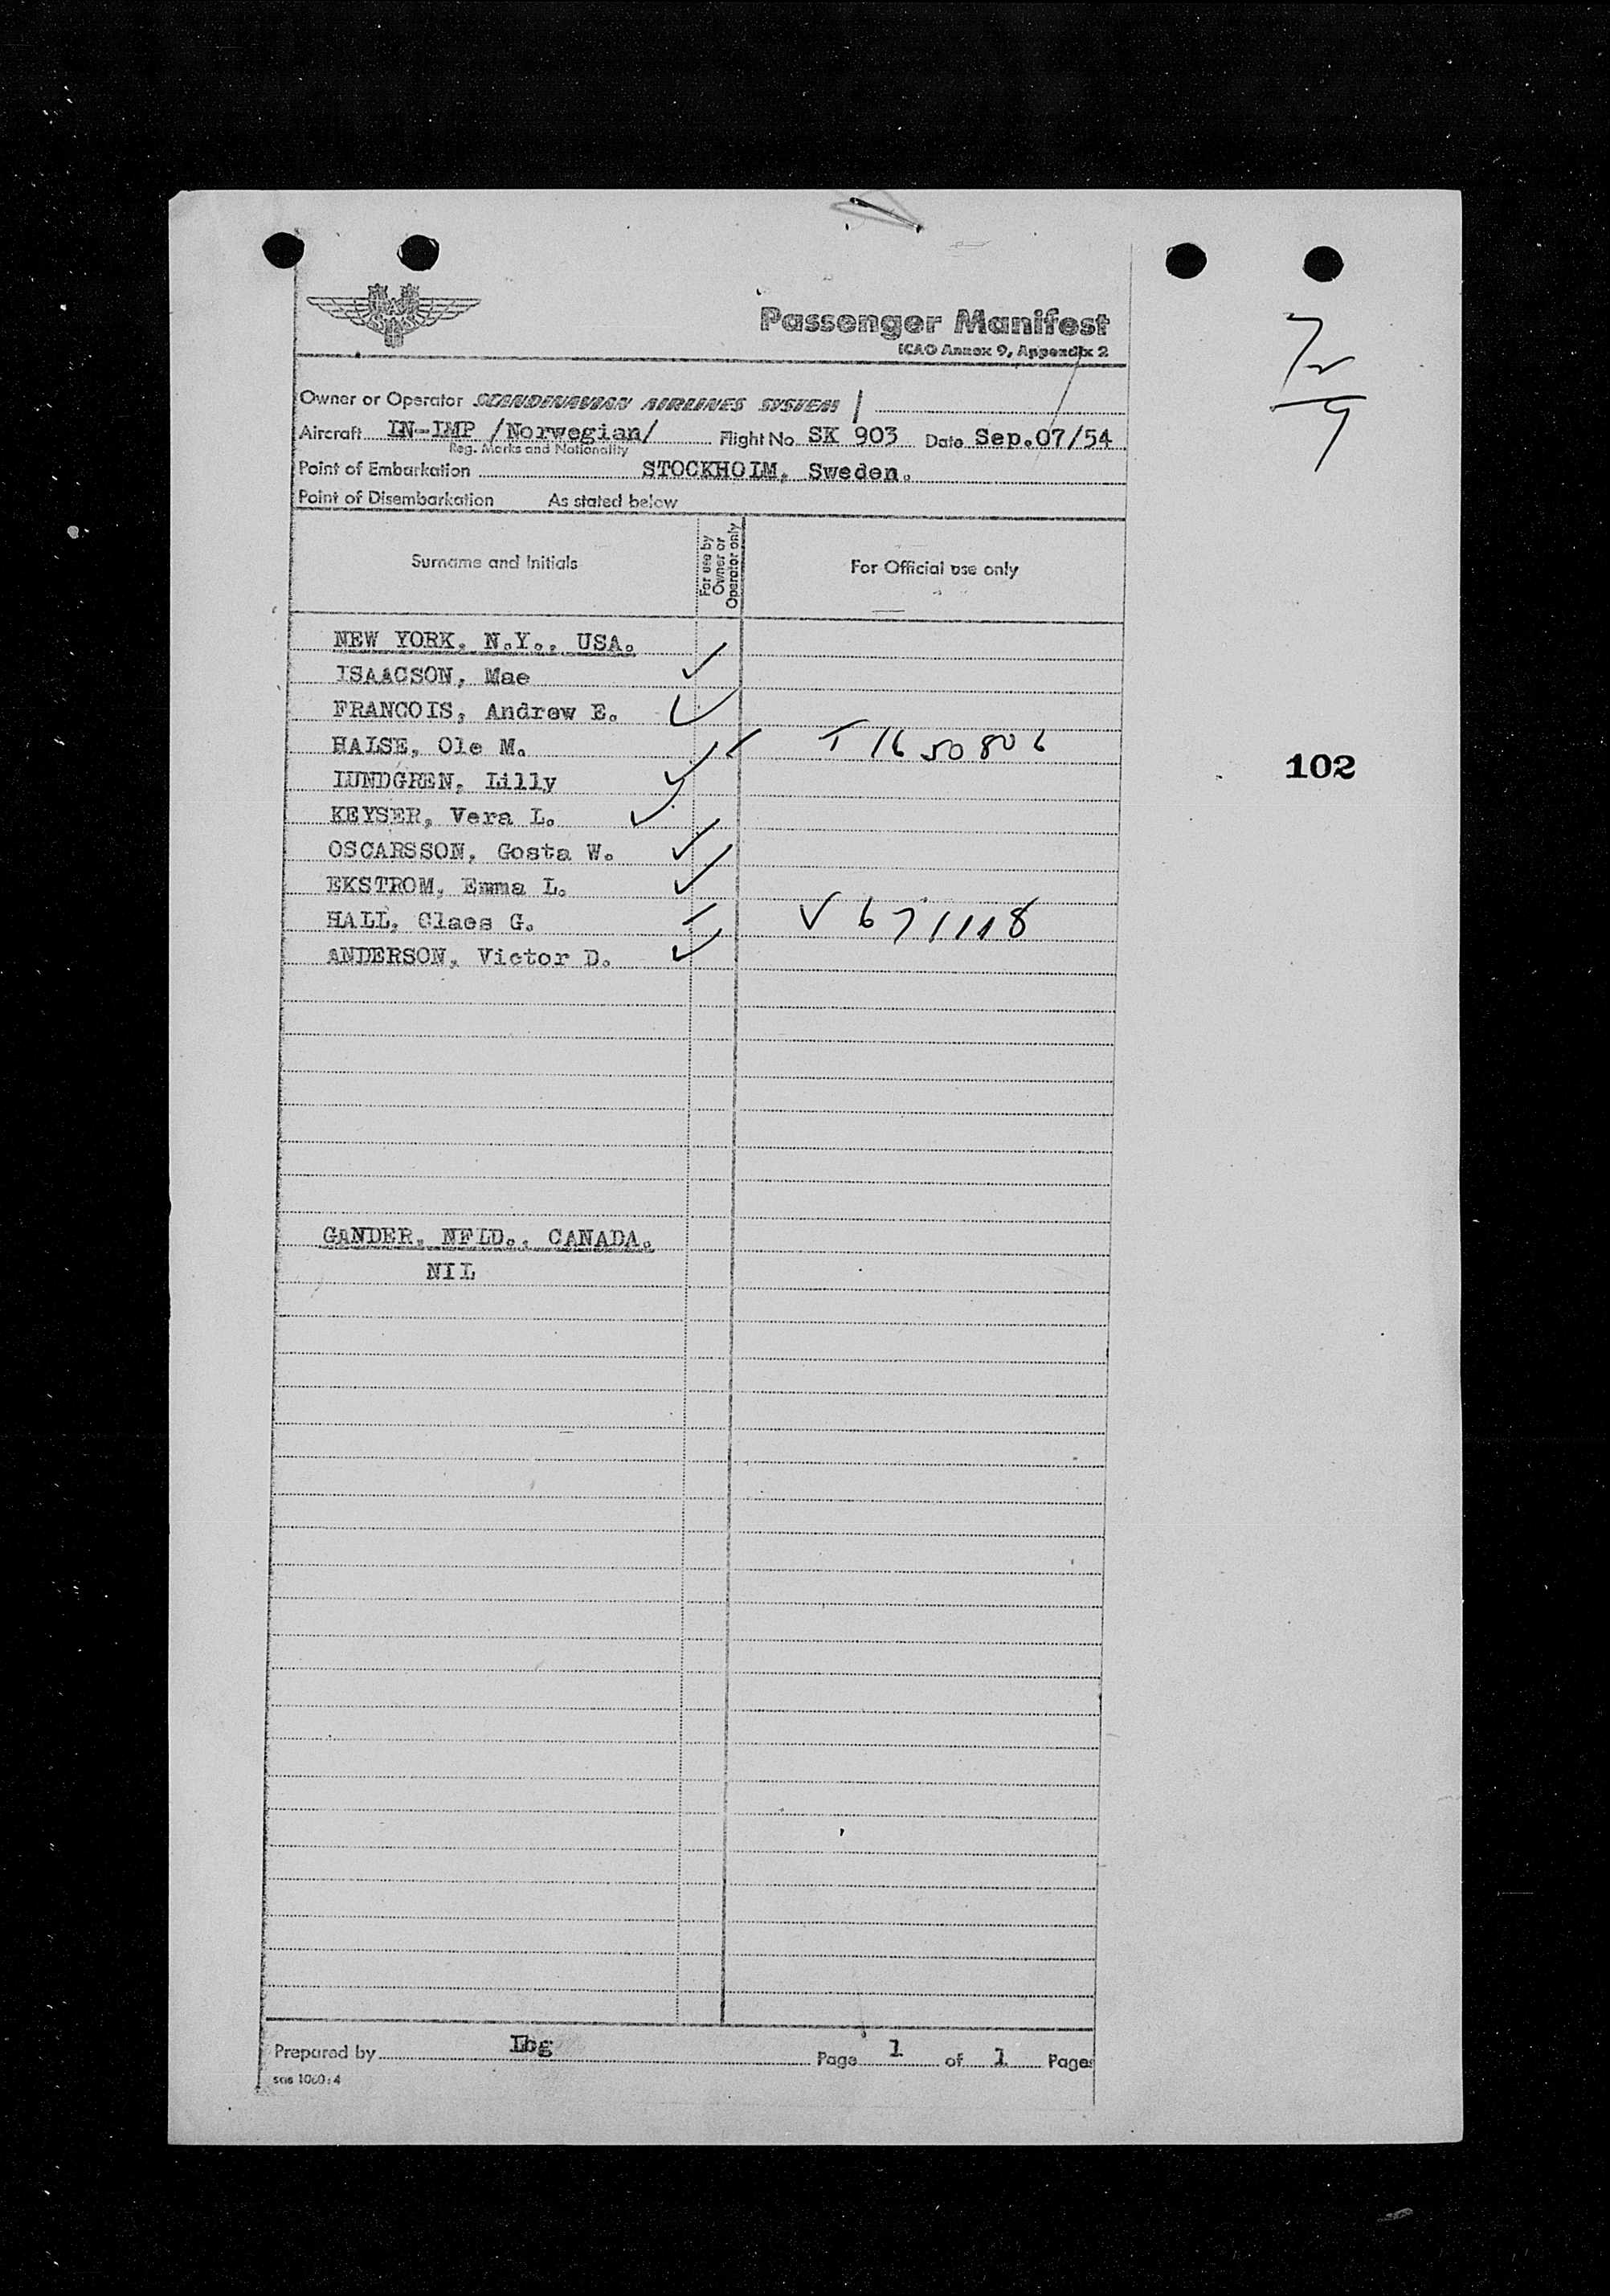 SAS
Passenger Manifest
ICAO Annex 9, Appendix 2
Owner or Operator SCANDINAVIAN AIRLINES SYSTEM
Aircraft LN-LMP /Norwegian/ Flight No. SK 903 Date Sep.07/54
Reg. Marks and Nationality
Point of Embarkation STOCKHOLM, Sweden.
Point of Disembarkation As stated below
Surname and Initials For use by Owner or Operator only For Official use only
NEW YORK, N.Y., USA.
ISAACSON, Mae
FRANCOIS, Andrew E.
HALSE, Ole M. T 1650806
LUNDGREN, Lilly
KEYSER, Vera L.
OSCARSSON, Gosta W.
EKSTROM, Emma L.
HALL, Claes G. V 671118
ANDERSON, Victor D.
GANDER, NFLD., CANADA.
NIL
Prepared by Lbg Page 1 of 1 Pages
sas 1060:4
102